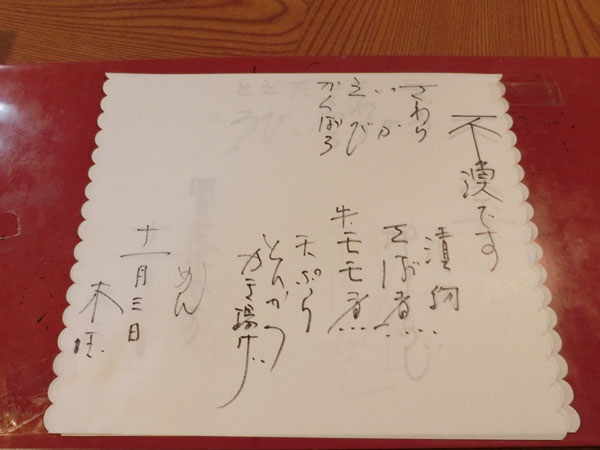 不漁です
さわら
いか
えび
かんぱち
漬物
さば煮
牛モモ煮
天ぷら
とんかつ
カキ揚げ
めん
十一月三日
木曜